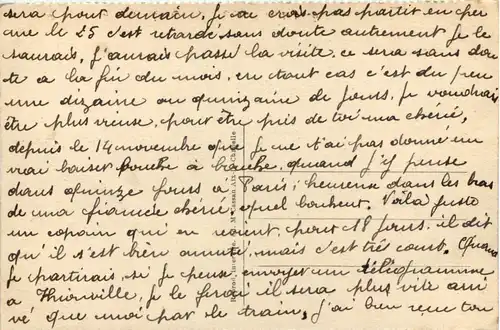 sera pour demain, je ne crois pas partir en per
me le 25 c'est retardé sans doute autrement je le
saurais, j'aurais passé la visite. ce sera sans dou
te a la fin du mois, en tout cas c'est du peu
une dizaine ou quinzaine de jours. Je voudrai
être plus vieux, pour être près de toi ma chérie,
depuis le 14 novembre que je ne t'ai pas donné un
vrai baiser bouche à bouche, quand j'y pense
dans quinze jours a Paris; heureux dans les bras
de ma fiancée chérie, quel bonheur. Voila juste
un copain qui en revient, pour 18 jours, il dit
qu'il s'est bien amusé, mais c'est très court. Quand
je partirais, si je peux envoyer un télégramme
a Thionville, je le ferai il sera plus vite arri
vé que moi par le train, j'ai bien reçu ton